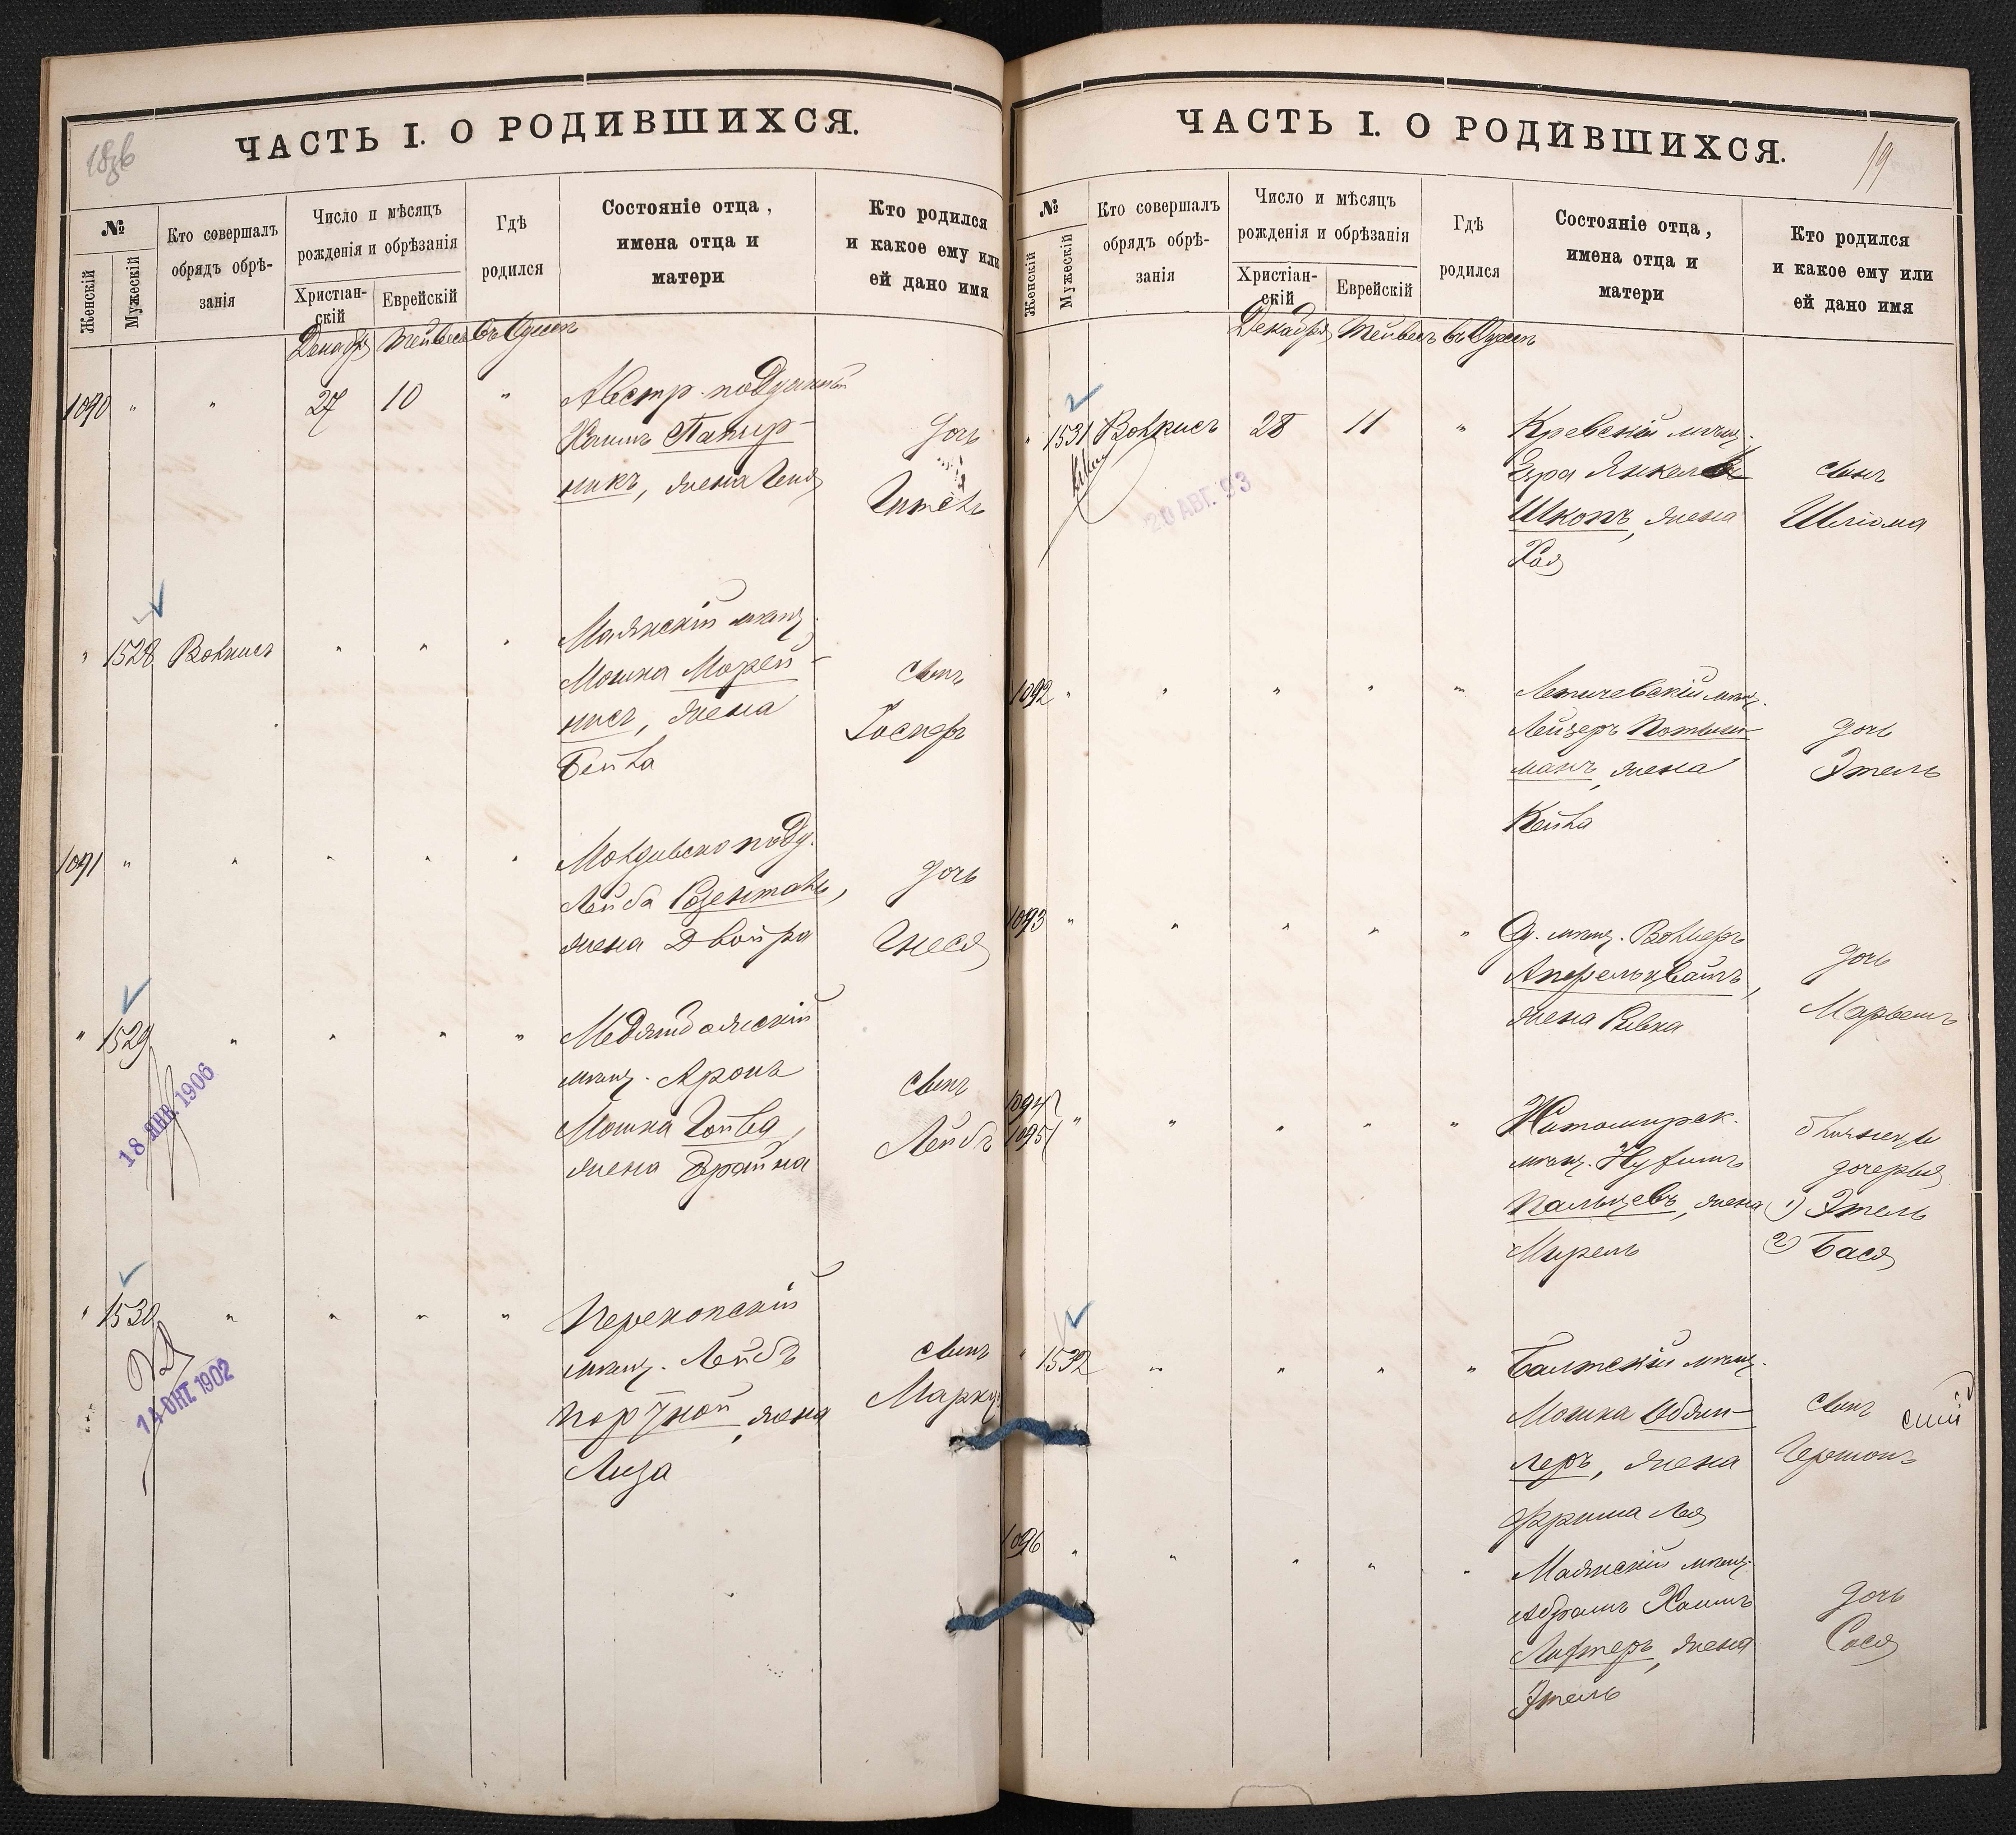 ЧАСТЬ I. О РОДИВШИХСЯ.
№
Женскій
Мужескій
Кто совершалъ
обрядъ обрѣ-
занія
Число и мѣсяцъ
рожденія и обрѣзанія
Христіан-
скій
Еврейскій
Гдѣ
родился
Состояніе отца,
имена отца и
матери
Кто родился
и какое ему или
ей дано имя
Декабря Тейвесъ въ Одессѣ
1090 " " 27 10 " Австр. подданный
Хаимъ Папир-
никъ, жена Геня
дочь
Гитель
" 1528 Волкисъ " " " Маякскій мѣщ.
Мошка Морей-
нисъ, жена
Бейла
сынъ
Іосифъ
1091 " " " " "
Лейба Розенталь,
жена Двойра
дочь
Гнеся
" 1529 " " " "
мѣщ. Аронъ
Мошка Гойва,
жена Фрайна
сынъ
Лейбъ
18 ЯНВ. 1906
" 1530 " " " " Перекопскій
мѣщ. Лейбъ
Портной, жена
Лиза
сынъ
Маркусъ
14 ОКТ. 1902
ЧАСТЬ I. О РОДИВШИХСЯ.
19
№
Женскій
Мужескій
Кто совершалъ
обрядъ обрѣ-
занія
Число и мѣсяцъ
рожденія и обрѣзанія
Христіан-
скій
Еврейскій
Гдѣ
родился
Состояніе отца,
имена отца и
матери
Кто родился
и какое ему или
ей дано имя
Декабря Тейвесъ въ Одессѣ
" 1531 Волкисъ 28 11 " Кревскій мѣщ.
Янкель
Школъ, жена
Хая
сынъ
Шлiома
20 АВГ. 93
1092 " " " " " Летичевскій мѣщ.
Лейзеръ
манъ, жена
Кейла
дочь
Этель
1093 " " " " " О. мѣщ. Волперъ
Апрельцвайгъ,
жена Ривка
дочь
Марьемъ
1094
1095 " " " " " Житомирск.
мѣщ. Нухимъ
Пальцевъ, жена
Мирель
близнецы
дочерья
1) Этель
2) Бася
" 1532 " " " " Балтскій мѣщ.
Мошка
леръ, жена
Фрима Лея
сынъ
Гершонъ
1096 " " " " " Маякскій мѣщ.
Абрамъ Хаимъ
Лифтеръ, жена
Этель
дочь
Сося